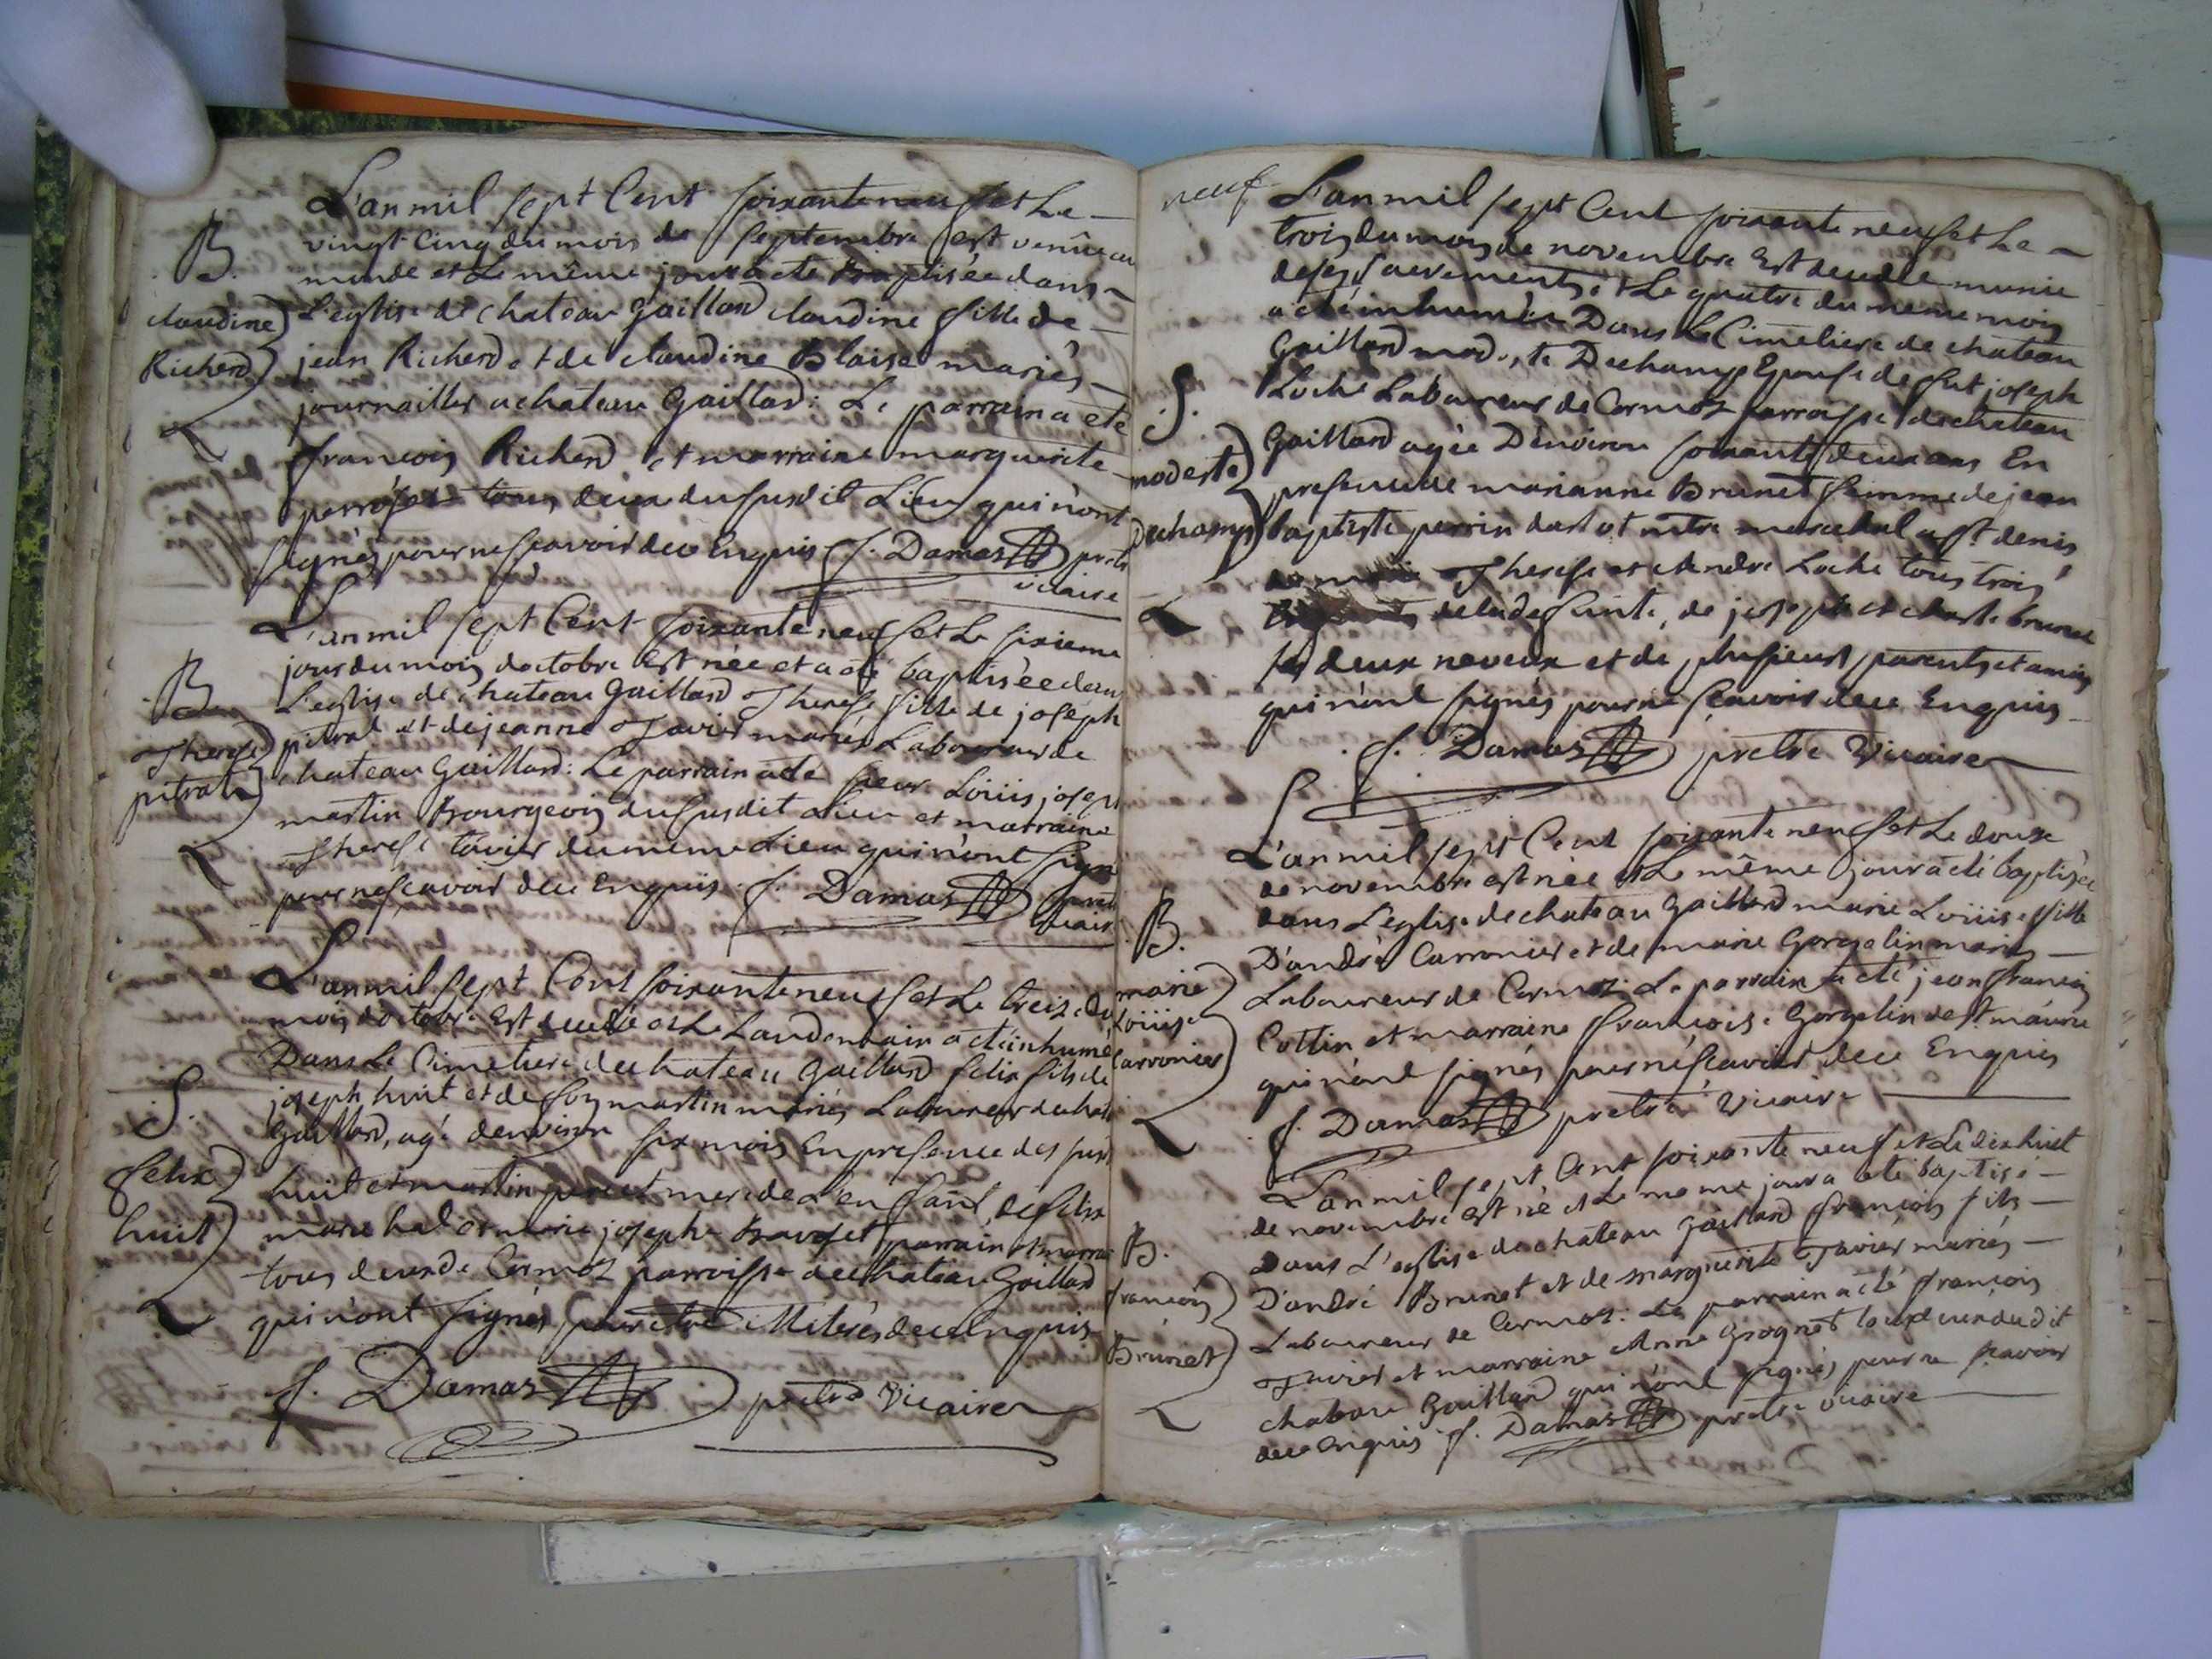 L'an mil sept Cent soixante neuf et Le
vingt Cinq du mois de septembre est venüe au
B.
monde et Le même jour a été Baptisée dans
claudine L'eglise de chateau Gaillard claudine fille de
Richerd jean Richerd et de claudine Blaise mariés
journaillier a chateau Gaillard : Le parrain a été
françois Richerd et marraine marguerite
tous deux du susdit Lieu qui n'ont
signés pour ne scavoir de ce Enquis f. Damas pretre
vicaire
L'an mil sept Cent soixante neuf et Le sixieme
jour du mois doctobre Est née et a été baptisée dans
B.
L'eglise de chateau Gaillard Therese fille de joseph
Therese pitrat et de jeanne Tavier mariés Laboureur de
pitrat chateau Gaillard : Le parrain a été sieur Loüis joseph
martin Bourgeois du susdit Lieu et marraine
Therese tavier du meme Lieu qui n'ont signé
pour ne scavoir de ce Enquis f. Damas pretre
vicair
L'an mil sept Cent soixante neuf et Le treize du
mois doctobre Est decedé et Le Landemain a été inhumé
Dans Le Cimetiere de chateau Gaillard felix fils de
S.
joseph huit et de foy martin mariés Laboureur de chate
Gaillard, agé denviron six mois En presence des sus
felix huit et martin pere et mere de L'enfant, de felix
huit marechal et marie josephe parrain et marrai
tous deux de Cormoz parroisse de chateau Gaillard
qui n'ont signés pour etre illiterés de ce Enquis
f. Damas pretre Vicaire
neuf
L'an mil sept Cent soixante neuf et Le
trois du mois de novembre Est decedée munie
de ses sacrements et Le quatre du meme mois
a été inhumée Dans Le Cimetiere de chateau
Gaillard modeste Dechamps Epouse de fut joseph
S.
Loche Laboureur de Cormoz parroisse de chateau
modeste Gaillard agée D'environ soixante deux ans En
presence de marianne Brunet femme de jean
Dechamps baptiste perrin marechal a st. denis
Therese et Andre Loche tous trois
de la defunte, de joseph et brunet
ses deux neveux et de plusieurs parents et amis
qui n'ont signés pour ne scavoir de ce Enquis
f. Damas pretre Vicaire
L'an mil sept Cent soixante neuf et Le douze
de novembre est née et Le même jour a été baptisée
dans L'eglise de chateau Gaillard marie Loüise fille
B.
D'andré Carronier et de marie Gorgelin mariés
marie Laboureur de Cormoz : Le parrain a été jean françois
Loüise Cottin et marraine françoise Gorgelin de st. maurice
Carronier qui n'ont signés pour ne scavoir de ce Enquis
f. Damas pretre Vicaire
L'an mil sept Cent soixante neuf et Le dix huit
de novembre est né et Le meme jour a été baptisé
B.
Dans L'eglise de chateau Gaillard françois fils
françois D'andré Brunet et de marguerite Tavier mariés
Laboureur de Cormoz : Le parrain a été françois
Brunet Tavier et marraine Anne Grognet tous deux du dit
chateau Gaillard qui n'ont signés pour ne scavoir
de ce enquis f. Damas pretre vicaire